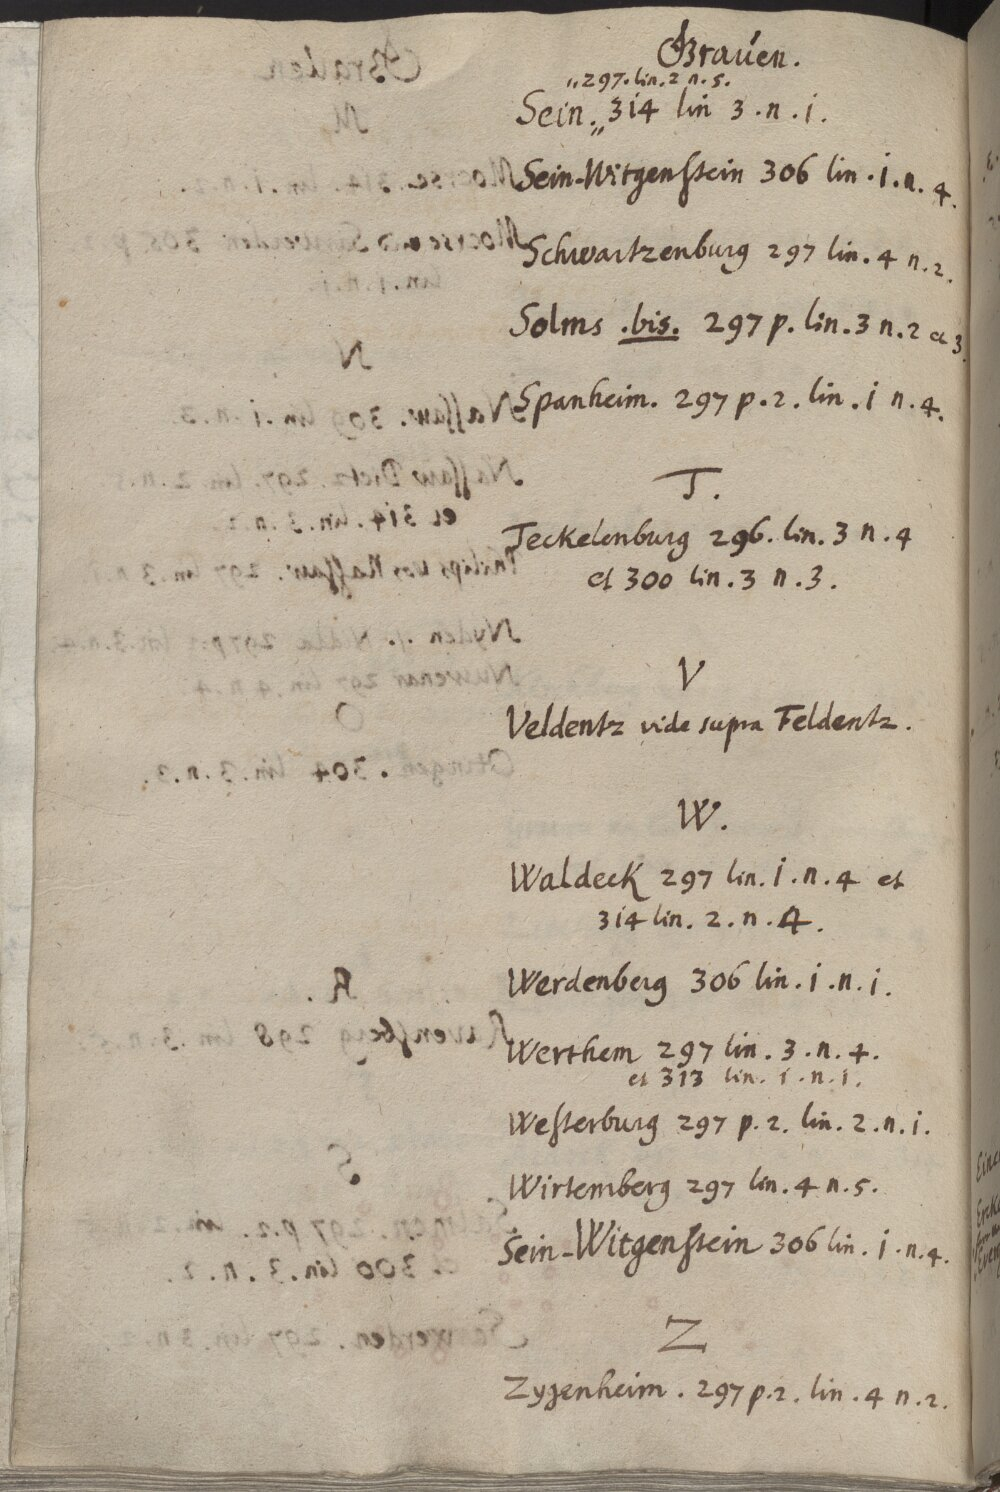 Graven.
„297. lin. 2 n. 5.
Sein. „ 314 lin 3. n. i.
Sein-Witgenstein 306 lin. i. n. 4.
Schwartzenburg 297 lin. 4 n. 2.
Solms .bis. 297 p. lin. 3 n. 2 et 3.
Spanheim. 297 p. 2. lin. i n. 4.
T.
Teckelenburg 296. lin. 3 n. 4
et 300 lin. 3 n. 3.
V
Veldentz vide supra Feldentz.
W.
Waldeck 297 lin. i. n. 4 et
3i4 lin. 2. n. 4.
Werdenberg 306 lin. i. n. i.
Werthem 297 lin. 3. n. 4.
et 313 lin. i. n. i.
Westerburg 297 p. 2. lin. 2. n. i.
Wirtemberg 297 lin. 4 n. 5.
Sein-Witgenstein 306 lin. i. n. 4.
Z
Zygenheim. 297 p. 2. lin. 4 n. 2.